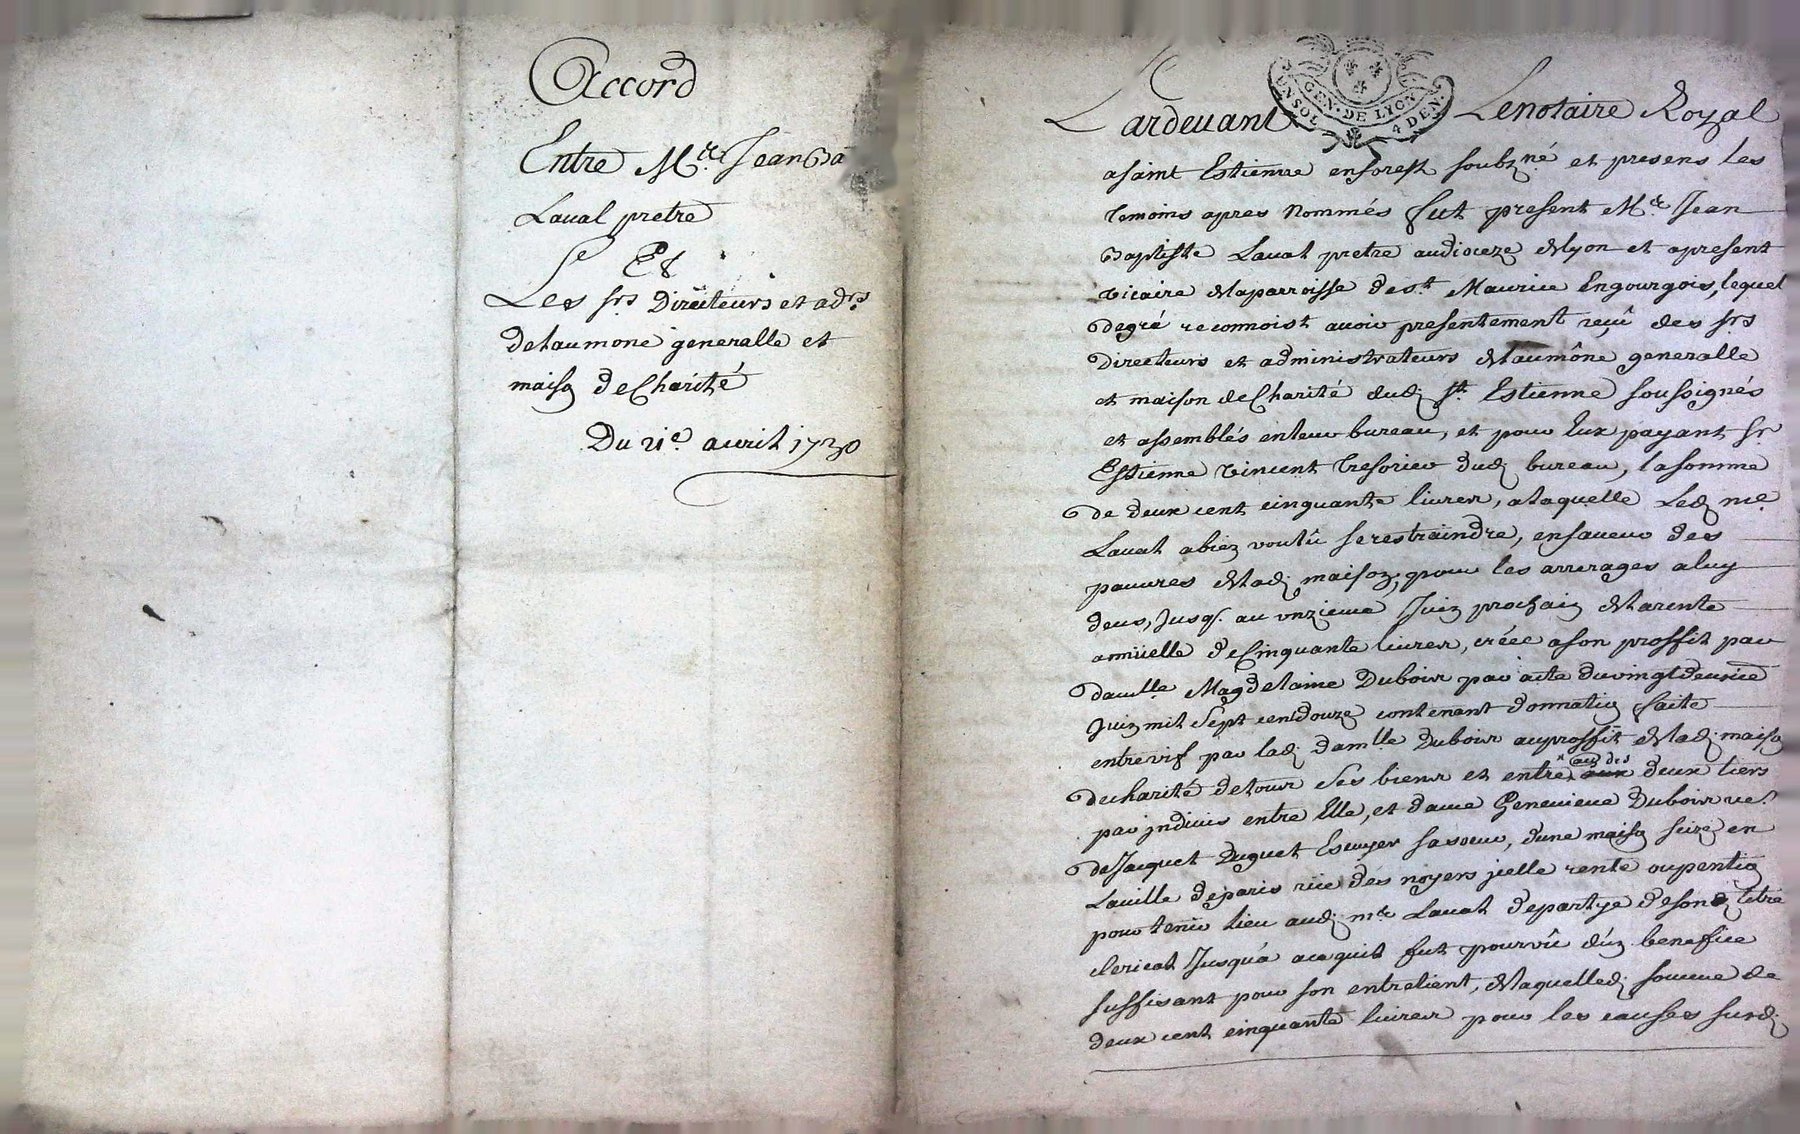 Accord
Entre Mre Jean Ba
Laual pretre
Et
Les srs Directeurs et adrs
delaumone generalle et
maison deCharité
Du 21e. auril 1730
GEN. DE LYON
UN SOL 4 DEN.
Pardeuant Lenotaire Royal
asaint Estienne enforest soubzné et presens les
temoins apres nommés fut present Mre Jean
Baptiste Laual pretre audioceze delyon et apresent
vicaire delaparroisse de st. Maurice Engourgois, lequel
degré reconnoist auoir presentement reçû des srs
Directeurs et administrateurs delaumône generalle
et maison deCharité dud st. Estienne soussignés
et assemblés enleur bureau, et pour Eux payant sr
Estienne Vincent Tresorier dud bureau, lasomme
de deux cent cinquante liures, alaquelle Led me.
Laual abien voulû serestraindre, enfaueur des
pauures delad maison, pour les arrerages aluy
deus, Jusq. au vnzieme Juin prochain delarente
annüelle deCinquante liures, créée ason proffit par
damlle Magdelaine Dubois par acte duvingtdeuxie
Juin mil sept centdouze contenant donnation faite
entrevif par lad damlle Dubois auproffit delad maison
decharité detous ses biens et entre au des deux tiers
par jndiuis entre Elle, et dame Geneuieue Dubois ve.
deJacques Duguet Escuyer sasoeur, dune maison scize en
Lauille deparis rüe des noyers jcelle rente oupention
pour tenir lieu aud mre Laual departye deson titre
clerical Jusqu'à acequil fut pourvû d'un benefice
suffisant pour son entretient, delaquelled somme de
deux cent cinquante liures pour les causes susd